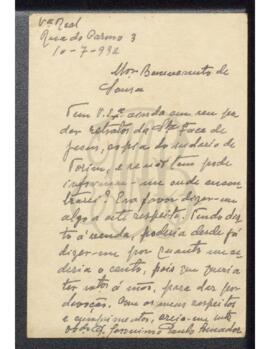 Vª Real
Rua do Carmo 3
10-7-932
Mor. Benevenuto de
Sousa
Tem V. Exª ainda em seu po
der retratos da Stª Face de
Jesus, copia do sudario de
Turim, e se não tem pode
informar-me onde encon
trarei? Era favor dizer-me
algo a este respeito. Tendo des
tes á venda, poderia desde já
dizer-me por quanto me
daria o cento, pois que queria
ter votos á mãos, para dar por
devoção. Com os meus respeitos
e cumprimentos, creia-me mto
obdo Jeronimo Paulo Amador